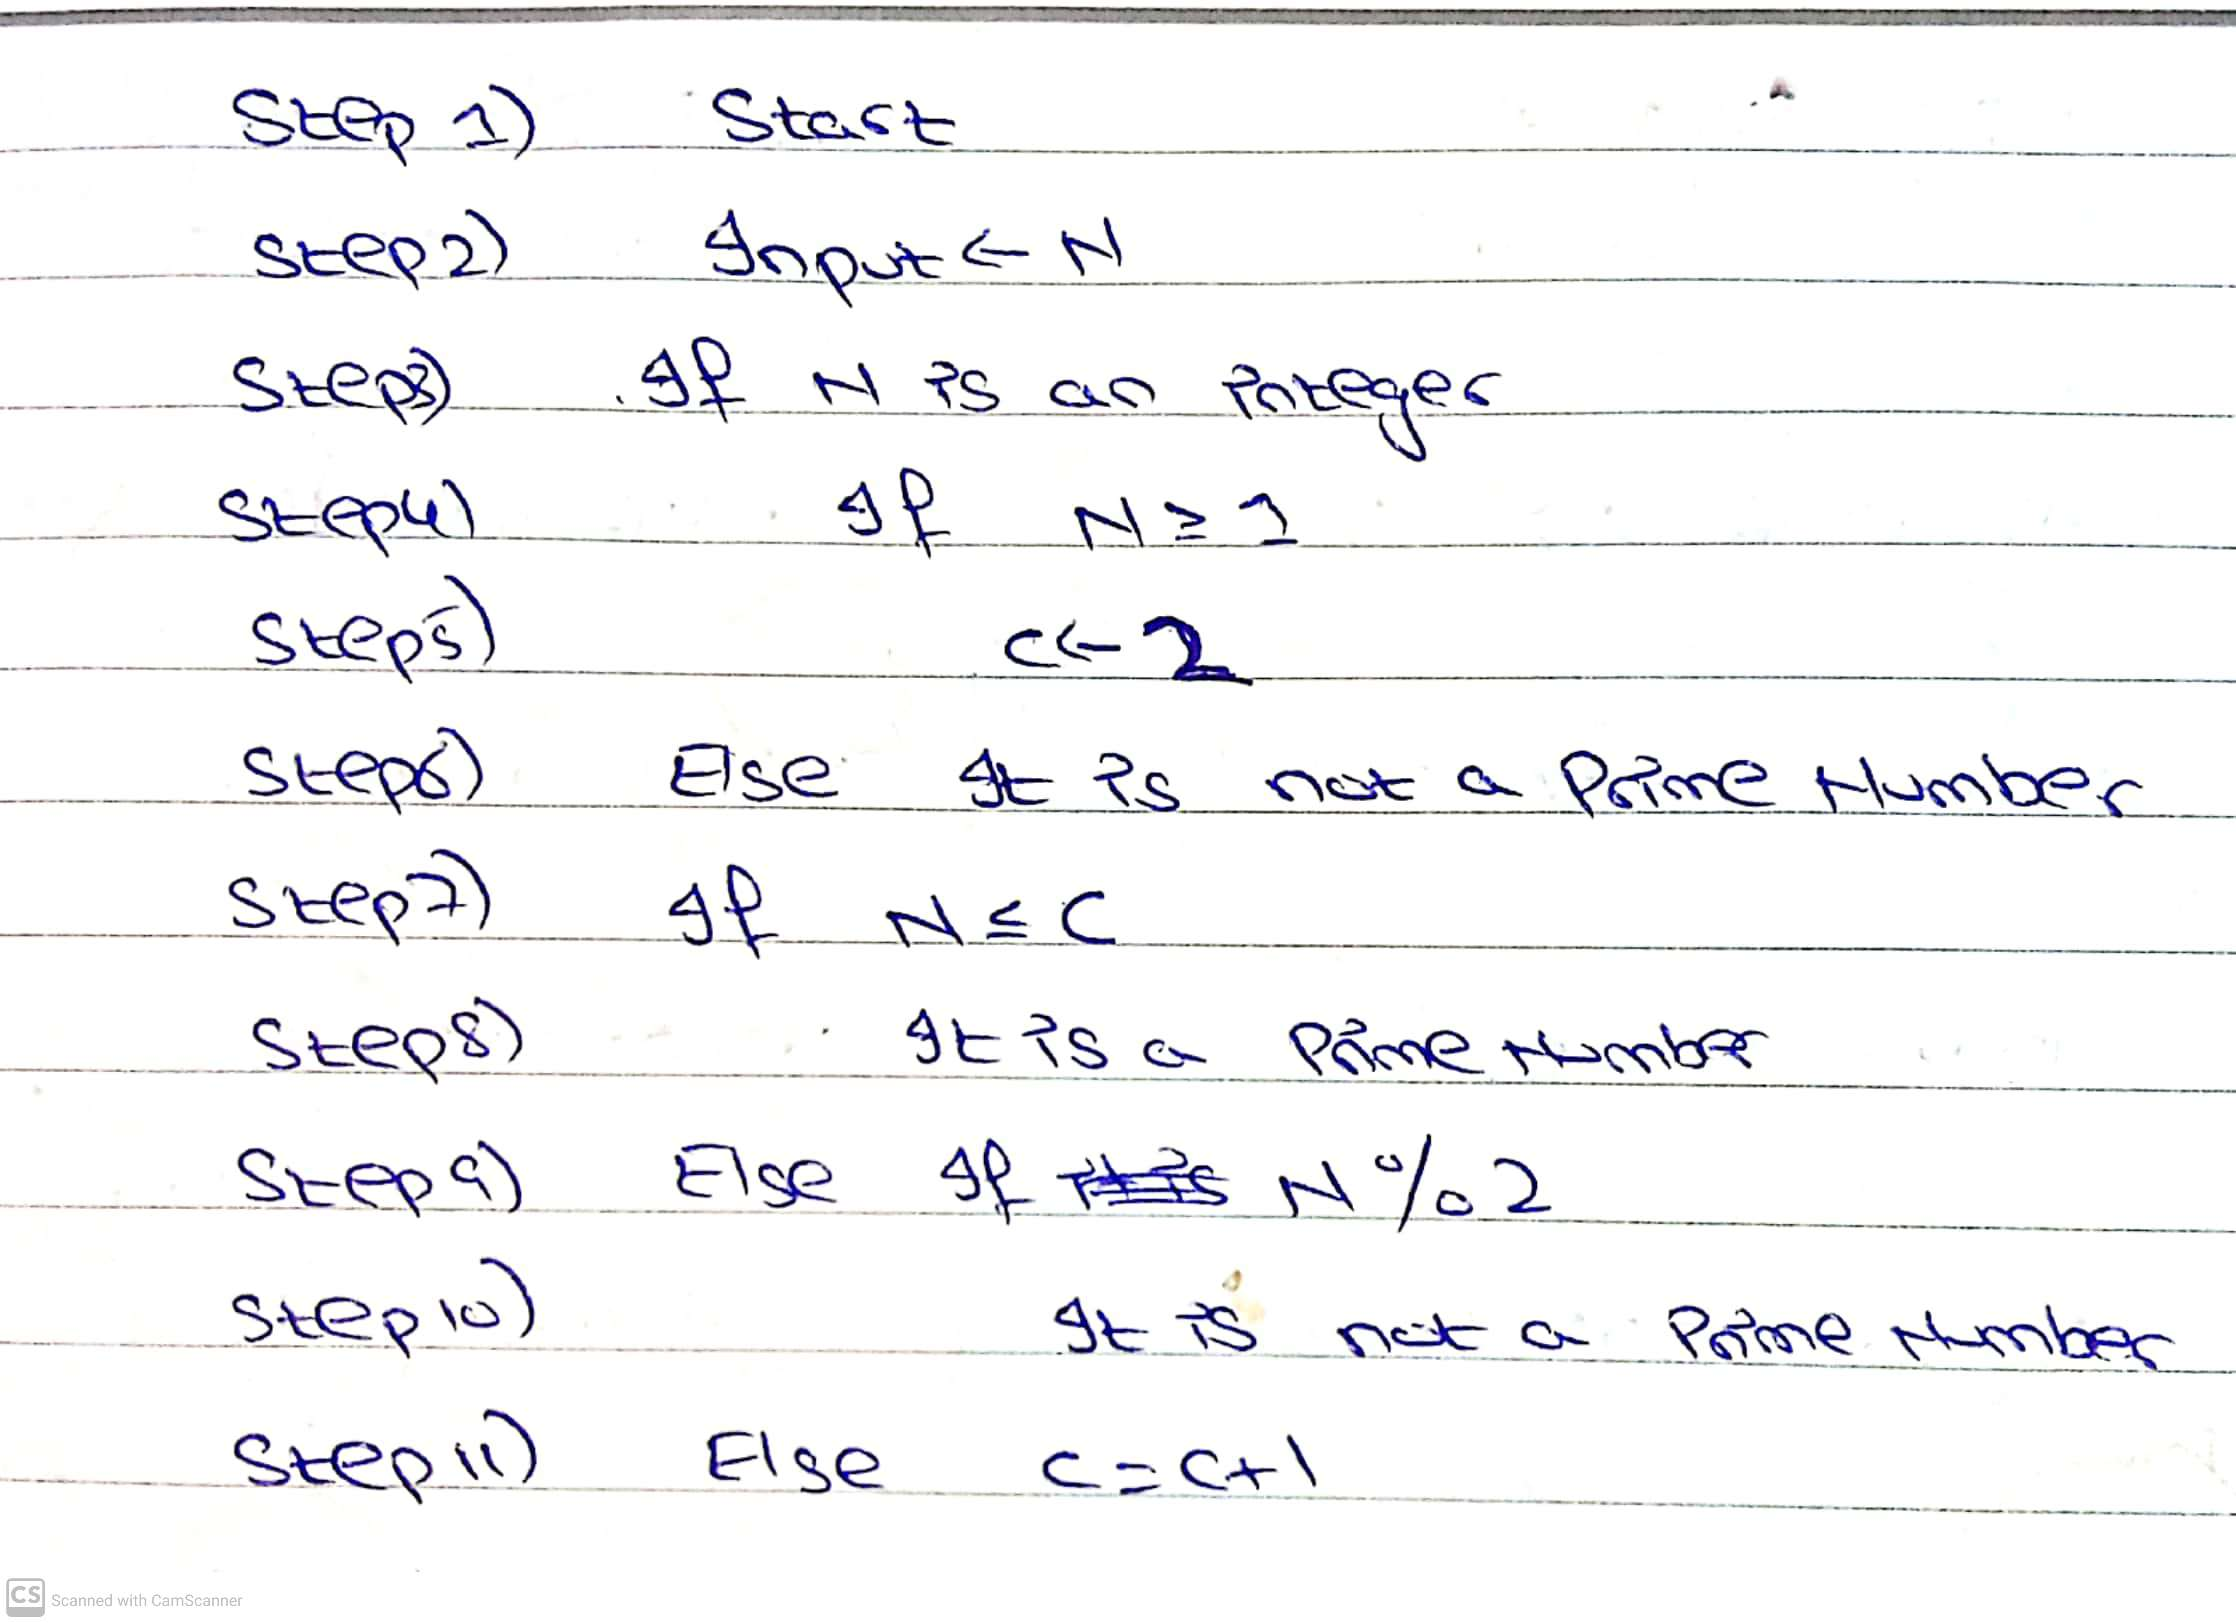 Step 1) Start
Step 2) Input ← N
Step 3) If N is an integer
Step 4) If N ≥ 1
Step 5) C ← 2
Step 6) Else It is not a Prime Number
Step 7) If N ≤ C
Step 8) It is a Prime Number
Step 9) Else If N % 2
Step 10) It is not a Prime Number
Step 11) Else C = C+1
CS Scanned with CamScanner